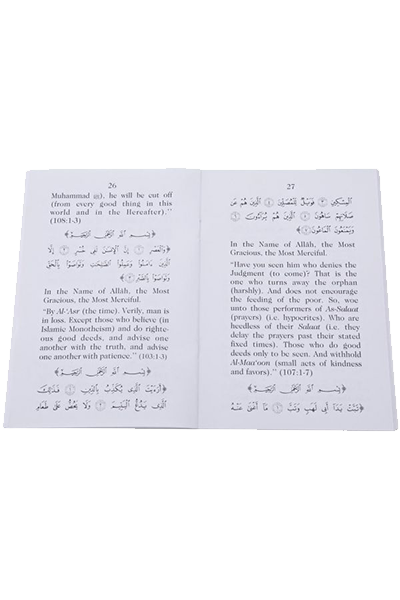 26
Muhammad ﷺ), he will be cut off
(from every good thing in this
world and in the Hereafter)."
(108:1-3)
﴿بِسْمِ اللَّهِ الرَّحْمَٰنِ الرَّحِيمِ﴾
﴿وَالْعَصْرِ ١ إِنَّ الْإِنسَانَ لَفِي خُسْرٍ ٢ إِلَّا
الَّذِينَ ءَامَنُوا وَعَمِلُوا الصَّالِحَاتِ وَتَوَاصَوْا بِالْحَقِّ
وَتَوَاصَوْا بِالصَّبْرِ ٣﴾
In the Name of Allâh, the Most
Gracious, the Most Merciful.
"By Al-'Asr (the time). Verily, man is
in loss. Except those who believe (in
Islamic Monotheism) and do righte-
ous good deeds, and advise one
another with the truth, and advise
one another with patience." (103:1-3)
﴿بِسْمِ اللَّهِ الرَّحْمَٰنِ الرَّحِيمِ﴾
﴿أَرَءَيْتَ الَّذِي يُكَذِّبُ بِالدِّينِ ١ فَذَٰلِكَ
الَّذِي يَدُعُّ الْيَتِيمَ ٢ وَلَا يَحُضُّ عَلَىٰ طَعَامِ
27
الْمِسْكِينِ ٣ فَوَيْلٌ لِّلْمُصَلِّينَ ٤ الَّذِينَ هُمْ عَن
صَلَاتِهِمْ سَاهُونَ ٥ الَّذِينَ هُمْ يُرَاءُونَ ٦
وَيَمْنَعُونَ الْمَاعُونَ ٧﴾
In the Name of Allâh, the Most
Gracious, the Most Merciful.
"Have you seen him who denies the
Judgment (to come)? That is the
one who turns away the orphan
(harshly). And does not encourage
the feeding of the poor. So, woe
unto those performers of As-Salaat
(prayers) (i.e. hypocrites). Who are
heedless of their Salaat (i.e. they
delay the prayers past their stated
fixed times). Those who do good
deeds only to be seen. And withhold
Al-Maa'oon (small acts of kindness
and favors)." (107:1-7)
﴿بِسْمِ اللَّهِ الرَّحْمَٰنِ الرَّحِيمِ﴾
﴿تَبَّتْ يَدَا أَبِي لَهَبٍ وَتَبَّ ١ مَا أَغْنَىٰ عَنْهُ